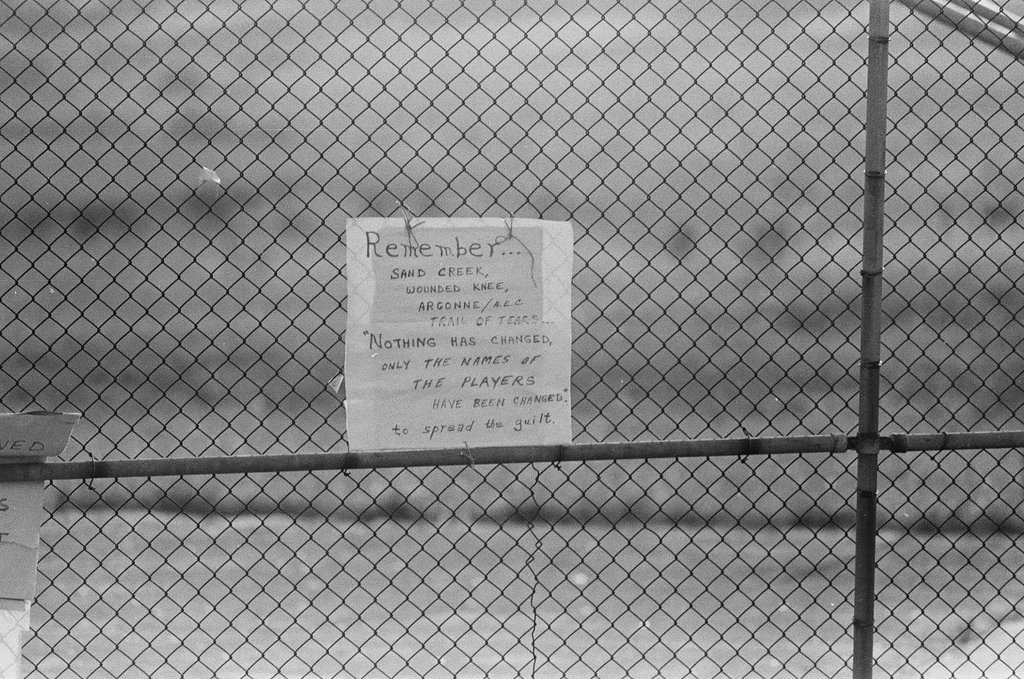 Remember...
SAND CREEK,
WOUNDED KNEE,
ARGONNE/A.E.C.
TRAIL OF TEARS...
"NOTHING HAS CHANGED,
ONLY THE NAMES OF
THE PLAYERS
HAVE BEEN CHANGED".
to spread the guilt.
VED
S
T